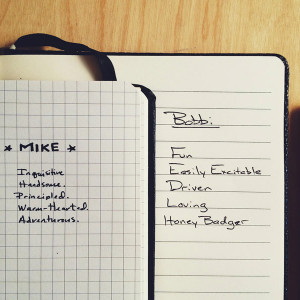 * MIKE *
Inquisitive.
Handsome.
Principled.
Warm-Hearted.
Adventurous.
Bobbi
Fun
Easily Excitable
Driven
Loving
Honey Badger